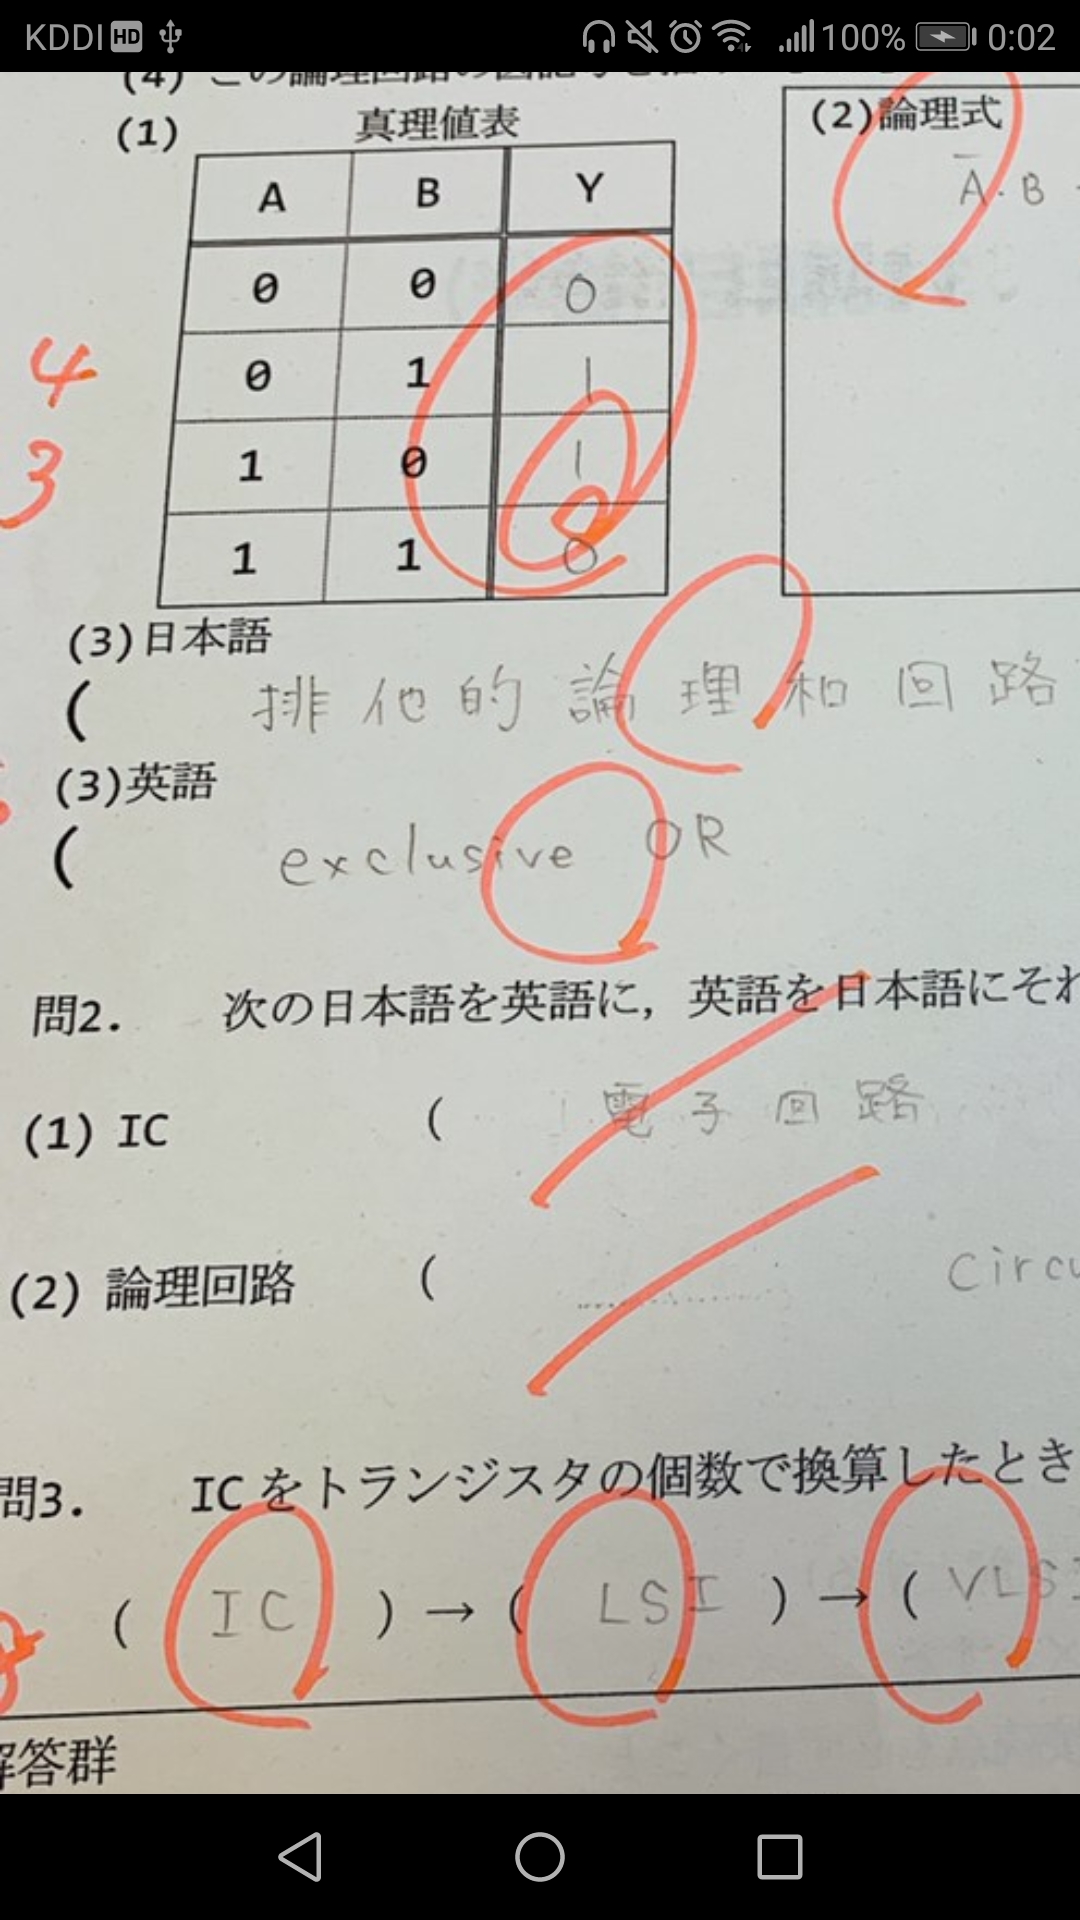 KDDI HD 100% 0:02
(1) 真理値表
A B Y
0 0 0
0 1 1
1 0 1
1 1 0
(2)論理式
A̅・B
4
3
(3)日本語
( 排他的論理和回路
(3)英語
( exclusive OR
問2. 次の日本語を英語に，英語を日本語にそれ
(1) IC ( 電子回路
(2) 論理回路 ( Circu
問3. ICをトランジスタの個数で換算したとき
( IC ) → ( LSI ) → ( VLSI
解答群